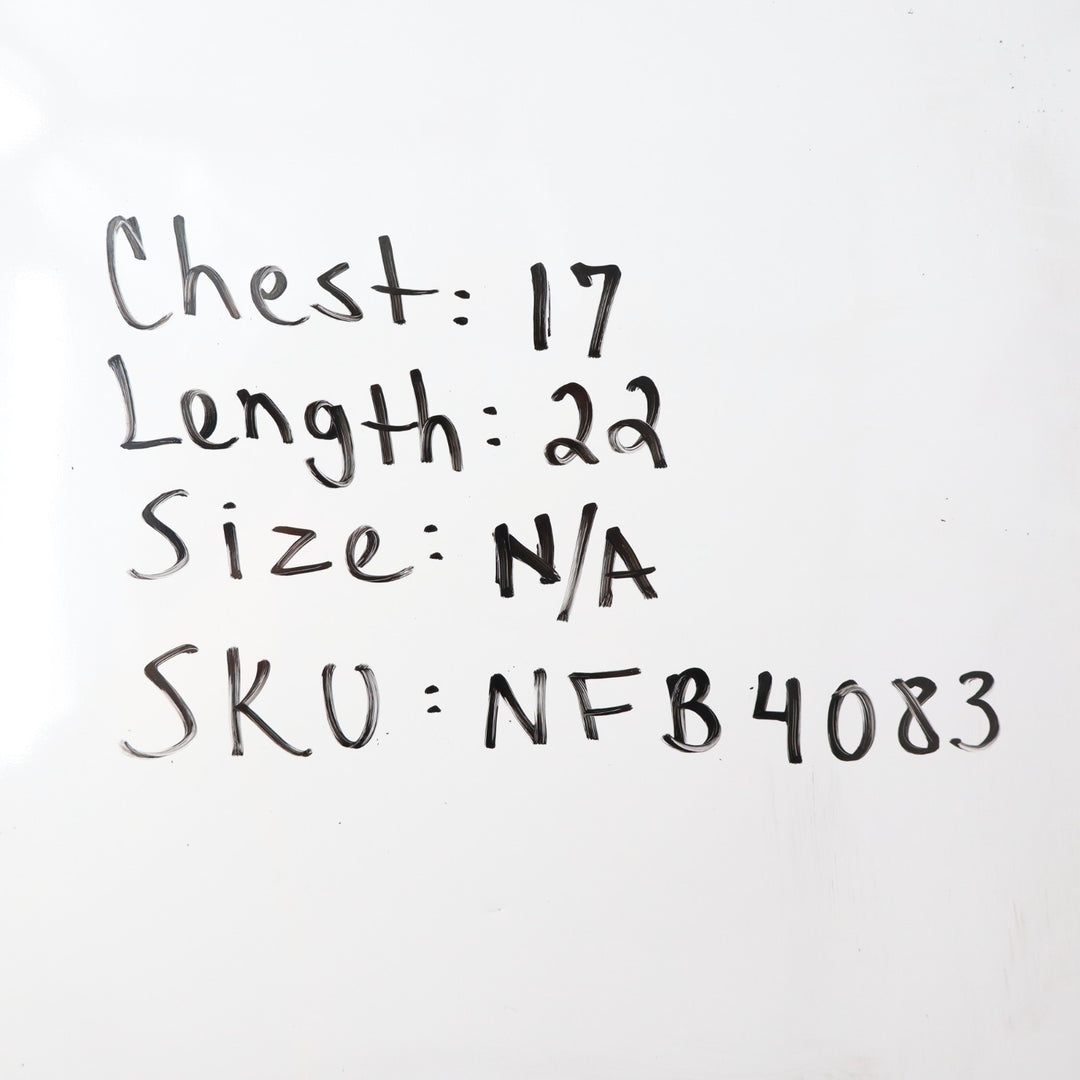 Chest: 17
Length: 22
Size: N/A
SKU: NFB4083